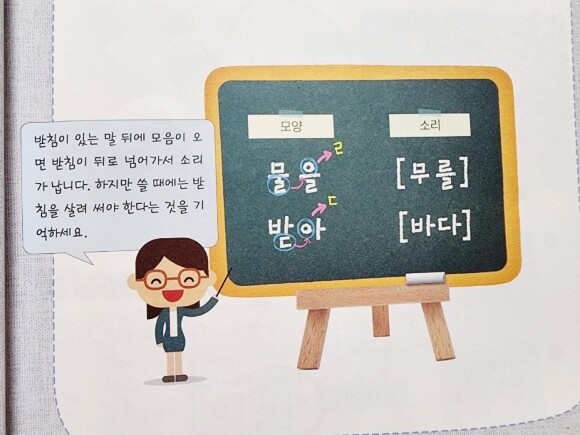 받침이 있는 말 뒤에 모음이 오
면 받침이 뒤로 넘어가서 소리
가 납니다. 하지만 쓸 때에는 받
침을 살려 써야 한다는 것을 기
억하세요.
모양 소리
물을 ㄹ [무를]
받아 ㄷ [바다]